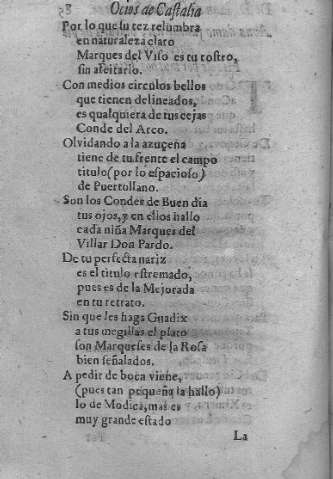 58 Ocios de Castalia
Por lo que su tez relumbra
en naturaleza claro
Marques del Viso es tu rostro,
sin afeitarlo.
Con medios circulos bellos
que tienen delineados,
es qualquiera de tus cejas
Conde del Arco.
Olvidando a la azuçena
tiene de tu frente el campo
titulo (por lo espacioso)
de Puertollano.
Son los Condes de Buen dia
tus ojos, y en ellos hallo
cada niña Marques del
Villar Don Pardo.
De tu perfecta nariz
es el titulo estremado,
pues es de la Mejorada
en tu retrato.
Sin que les haga Guadix
a tus megillas el plato
son Marqueses de la Rosa
bien señalados.
A pedir de boca viene,
(pues tan pequeña la hallo)
lo de Modica, mas es
muy grande estado
La